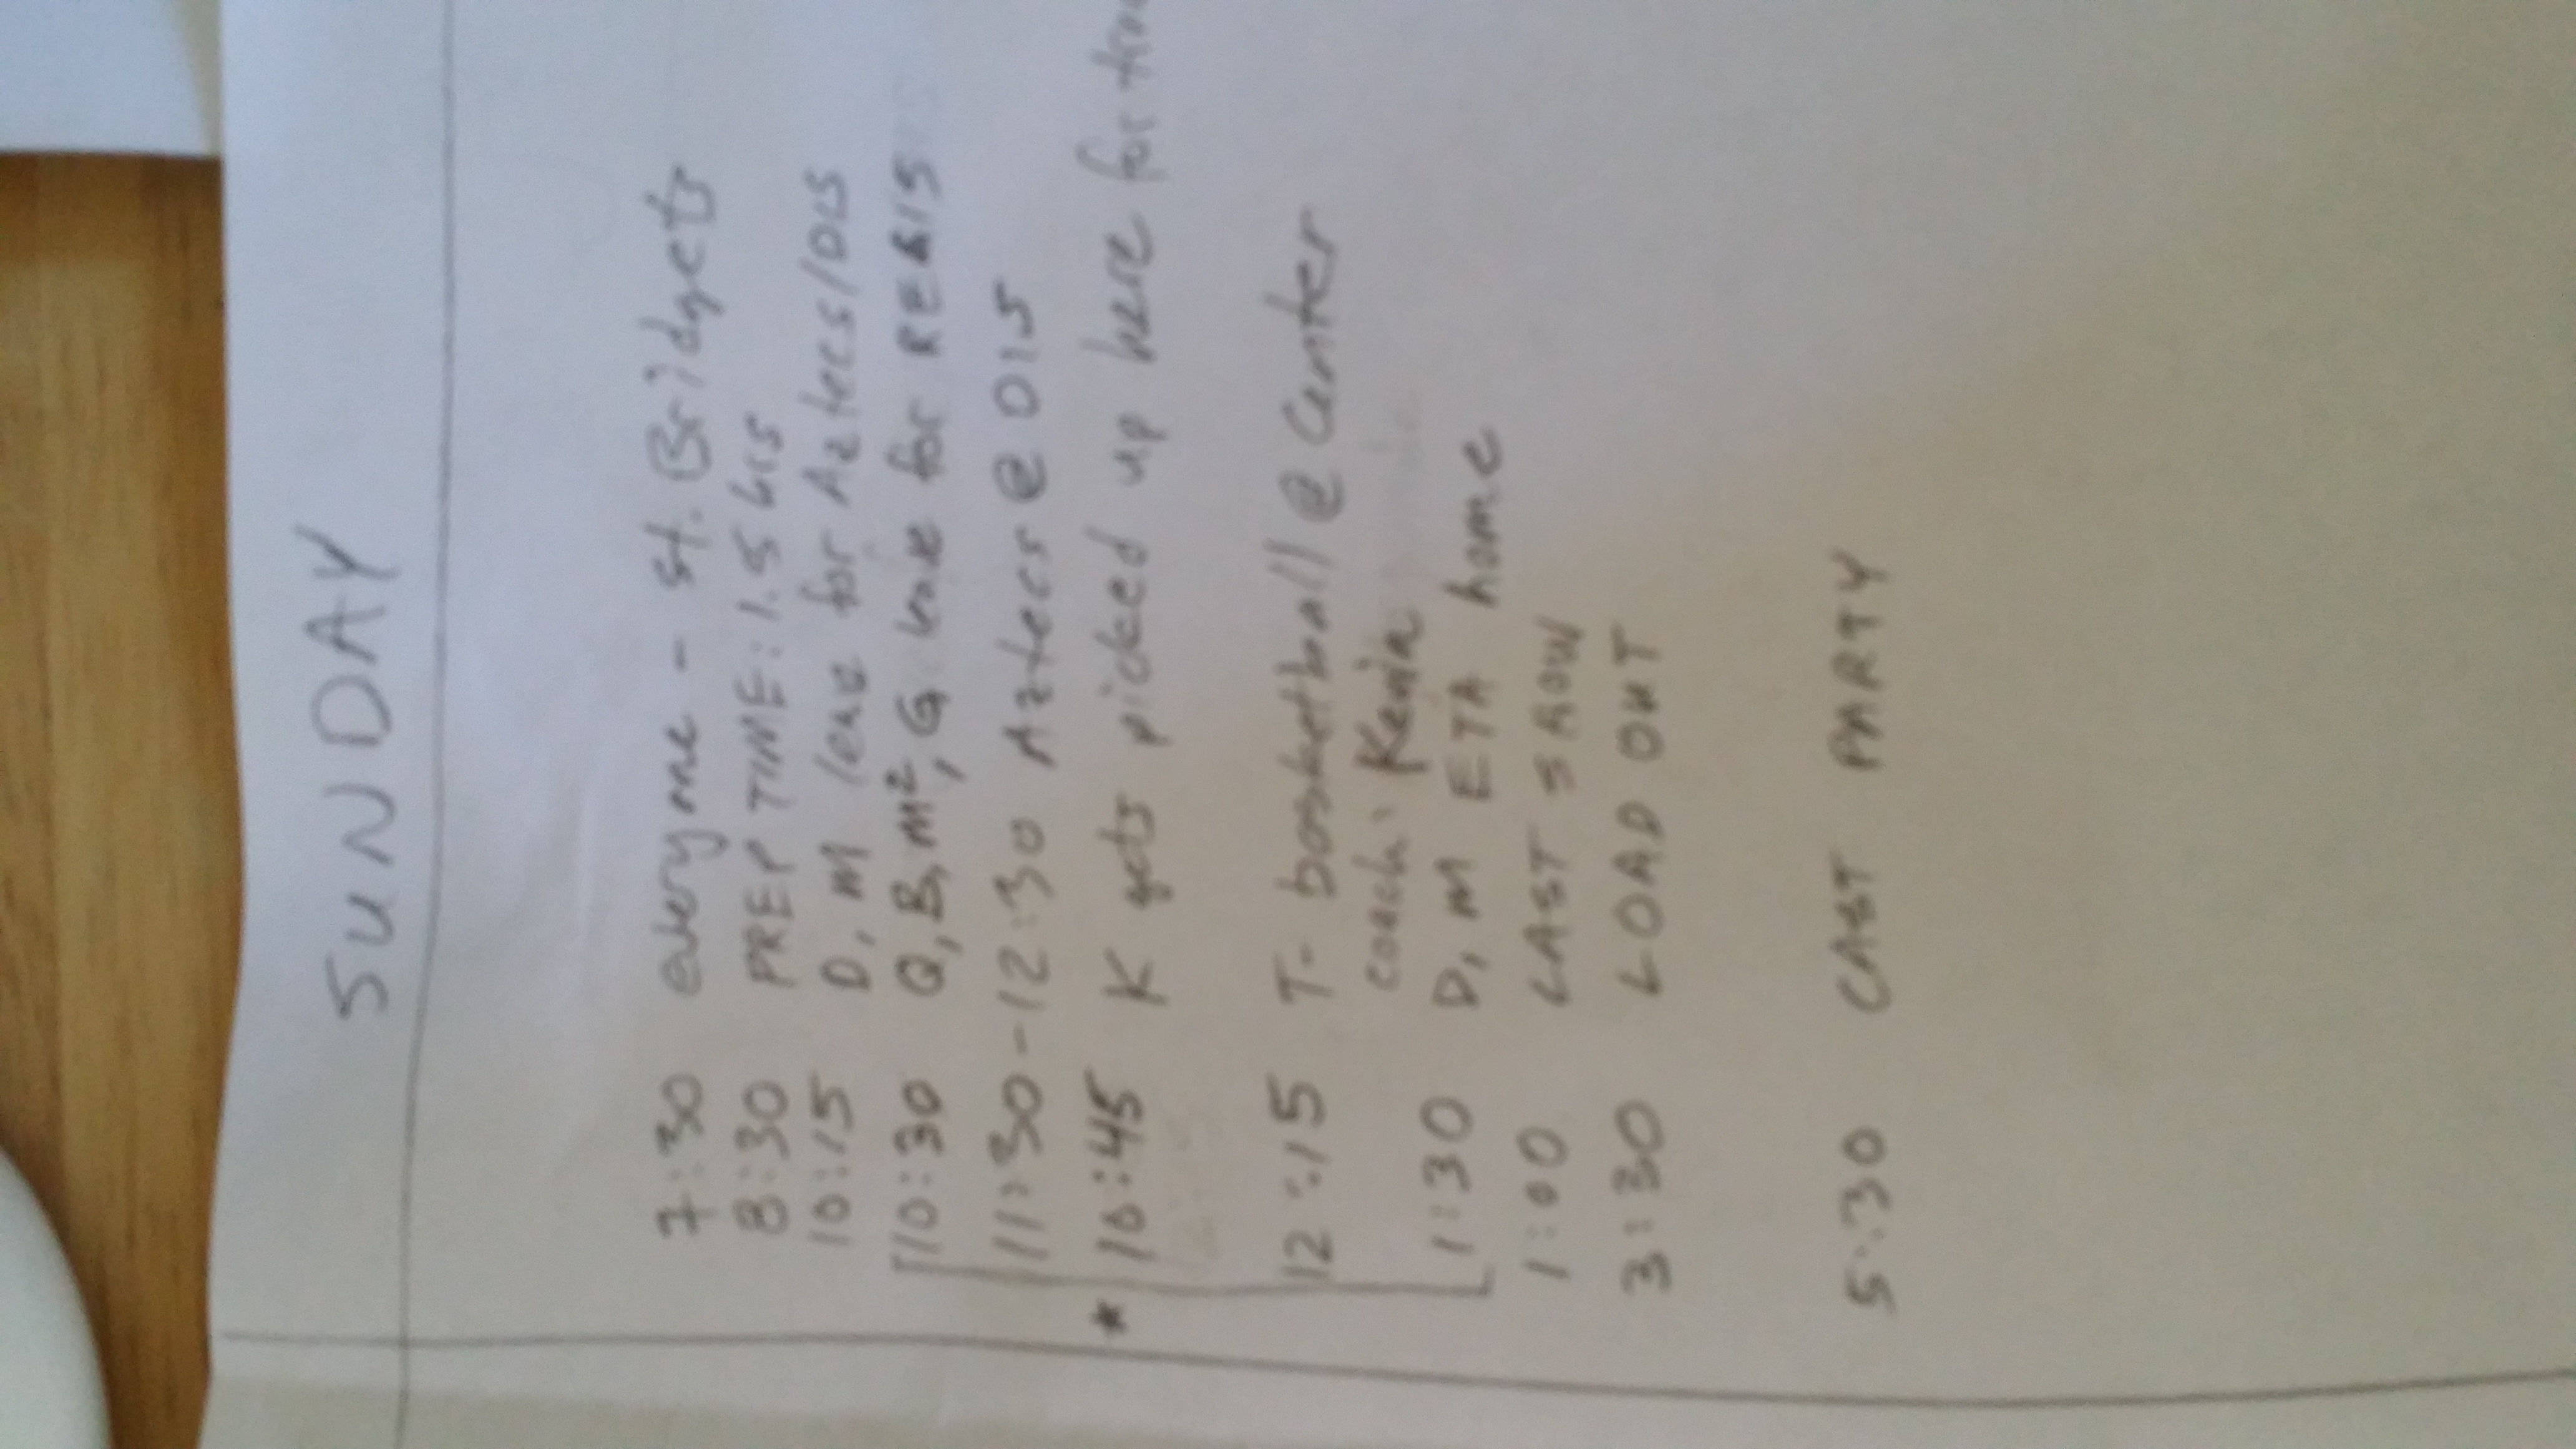 SUNDAY
7:30 everyone - St. Bridgets
8:30 PREP TIME: 1.5 hrs
10:15 D, M leave for Aztecs/OIS
10:30 Q, B, M², G leave for REGIS
11:30-12:30 Aztecs @ OIS
* 10:45 K gets picked up here for
12:15 T- basketball @ Center
coach: Kevin
1:30 D, M ETA home
1:00 LAST SHOW
3:30 LOAD OUT
5:30 CAST PARTY